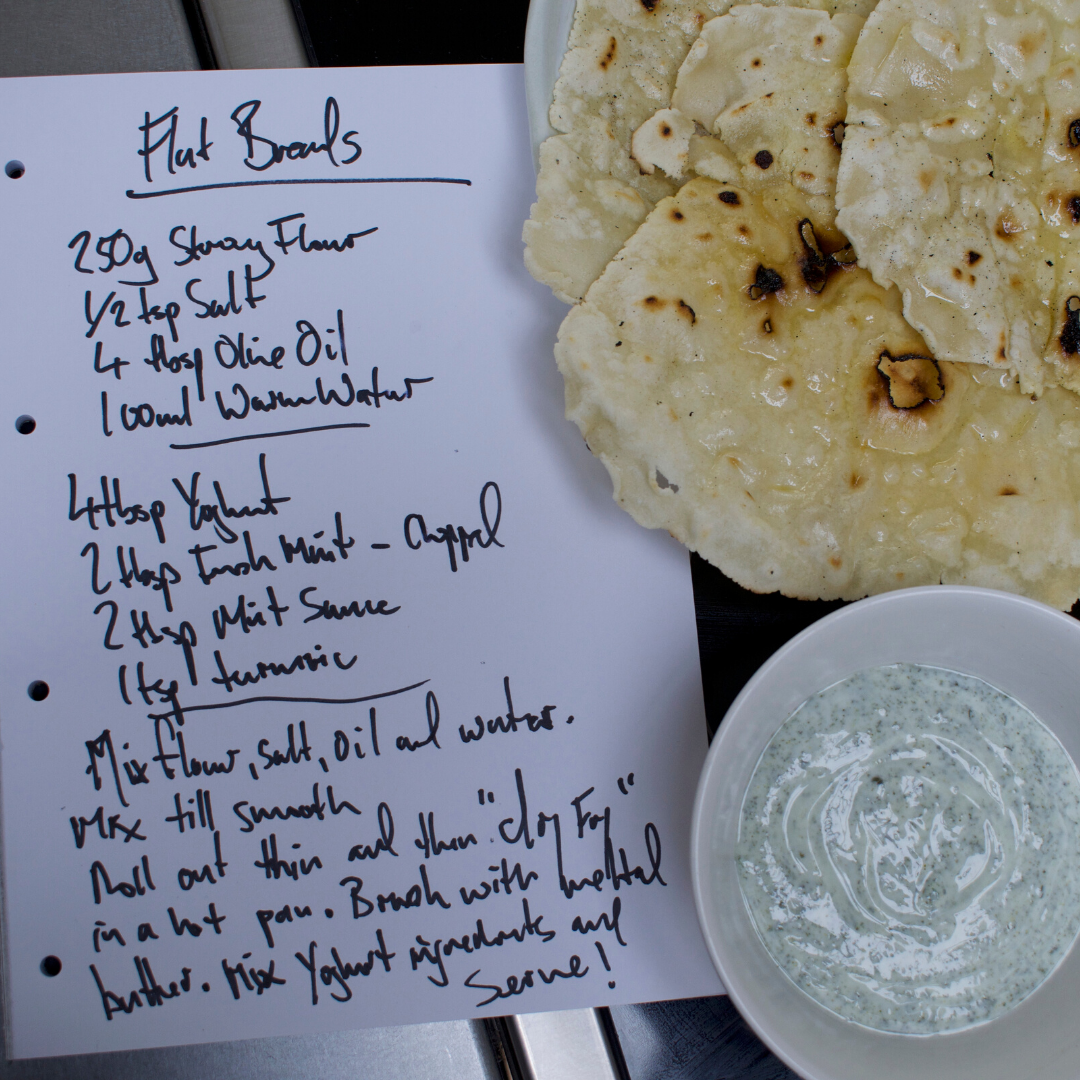 Flat Breads
250g Strong Flour
1/2 tsp Salt
4 tbsp Olive Oil
100ml Warm Water
4tbsp Yoghurt
2 tbsp Fresh Mint - Chopped
2 tbsp Mint Sauce
1tsp turmeric
Mix flour, salt, oil and water.
Mix till smooth
Roll out thin and then "dry Fry"
in a hot pan. Brush with melted
butter. Mix Yoghurt ingredients and
Serve!